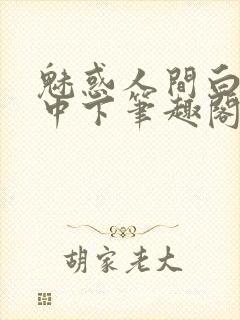 魅惑人間白
中下筆趣閣
胡家老大